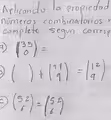 Aplicando la propiedad
números combinatorios
complete según corresp
a) (35 0) =
b) ( ) + ( ) = (12 9)
c) (52 6) = (52 )